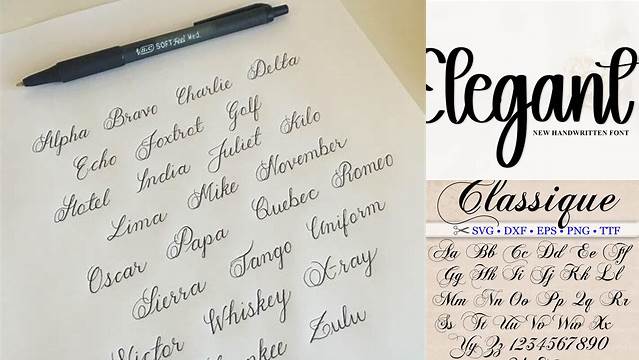 BIC SOFT Feel Med.
Alpha Bravo Charlie Delta
Echo Foxtrot Golf
Hotel India Juliet Kilo
Lima Mike November
Oscar Papa Quebec Romeo
Sierra Tango Uniform
Victor Whiskey X-ray
Zulu
Elegant
NEW HANDWRITTEN FONT
Classique
SVG • DXF • EPS • PNG • TTF
Aa Bb Cc Dd Ee Ff
Gg Hh Ii Jj Kk Ll
Mm Nn Oo Pp Qq Rr
Ss Tt Uu Vv Ww Xx
Yy Zz 1234567890